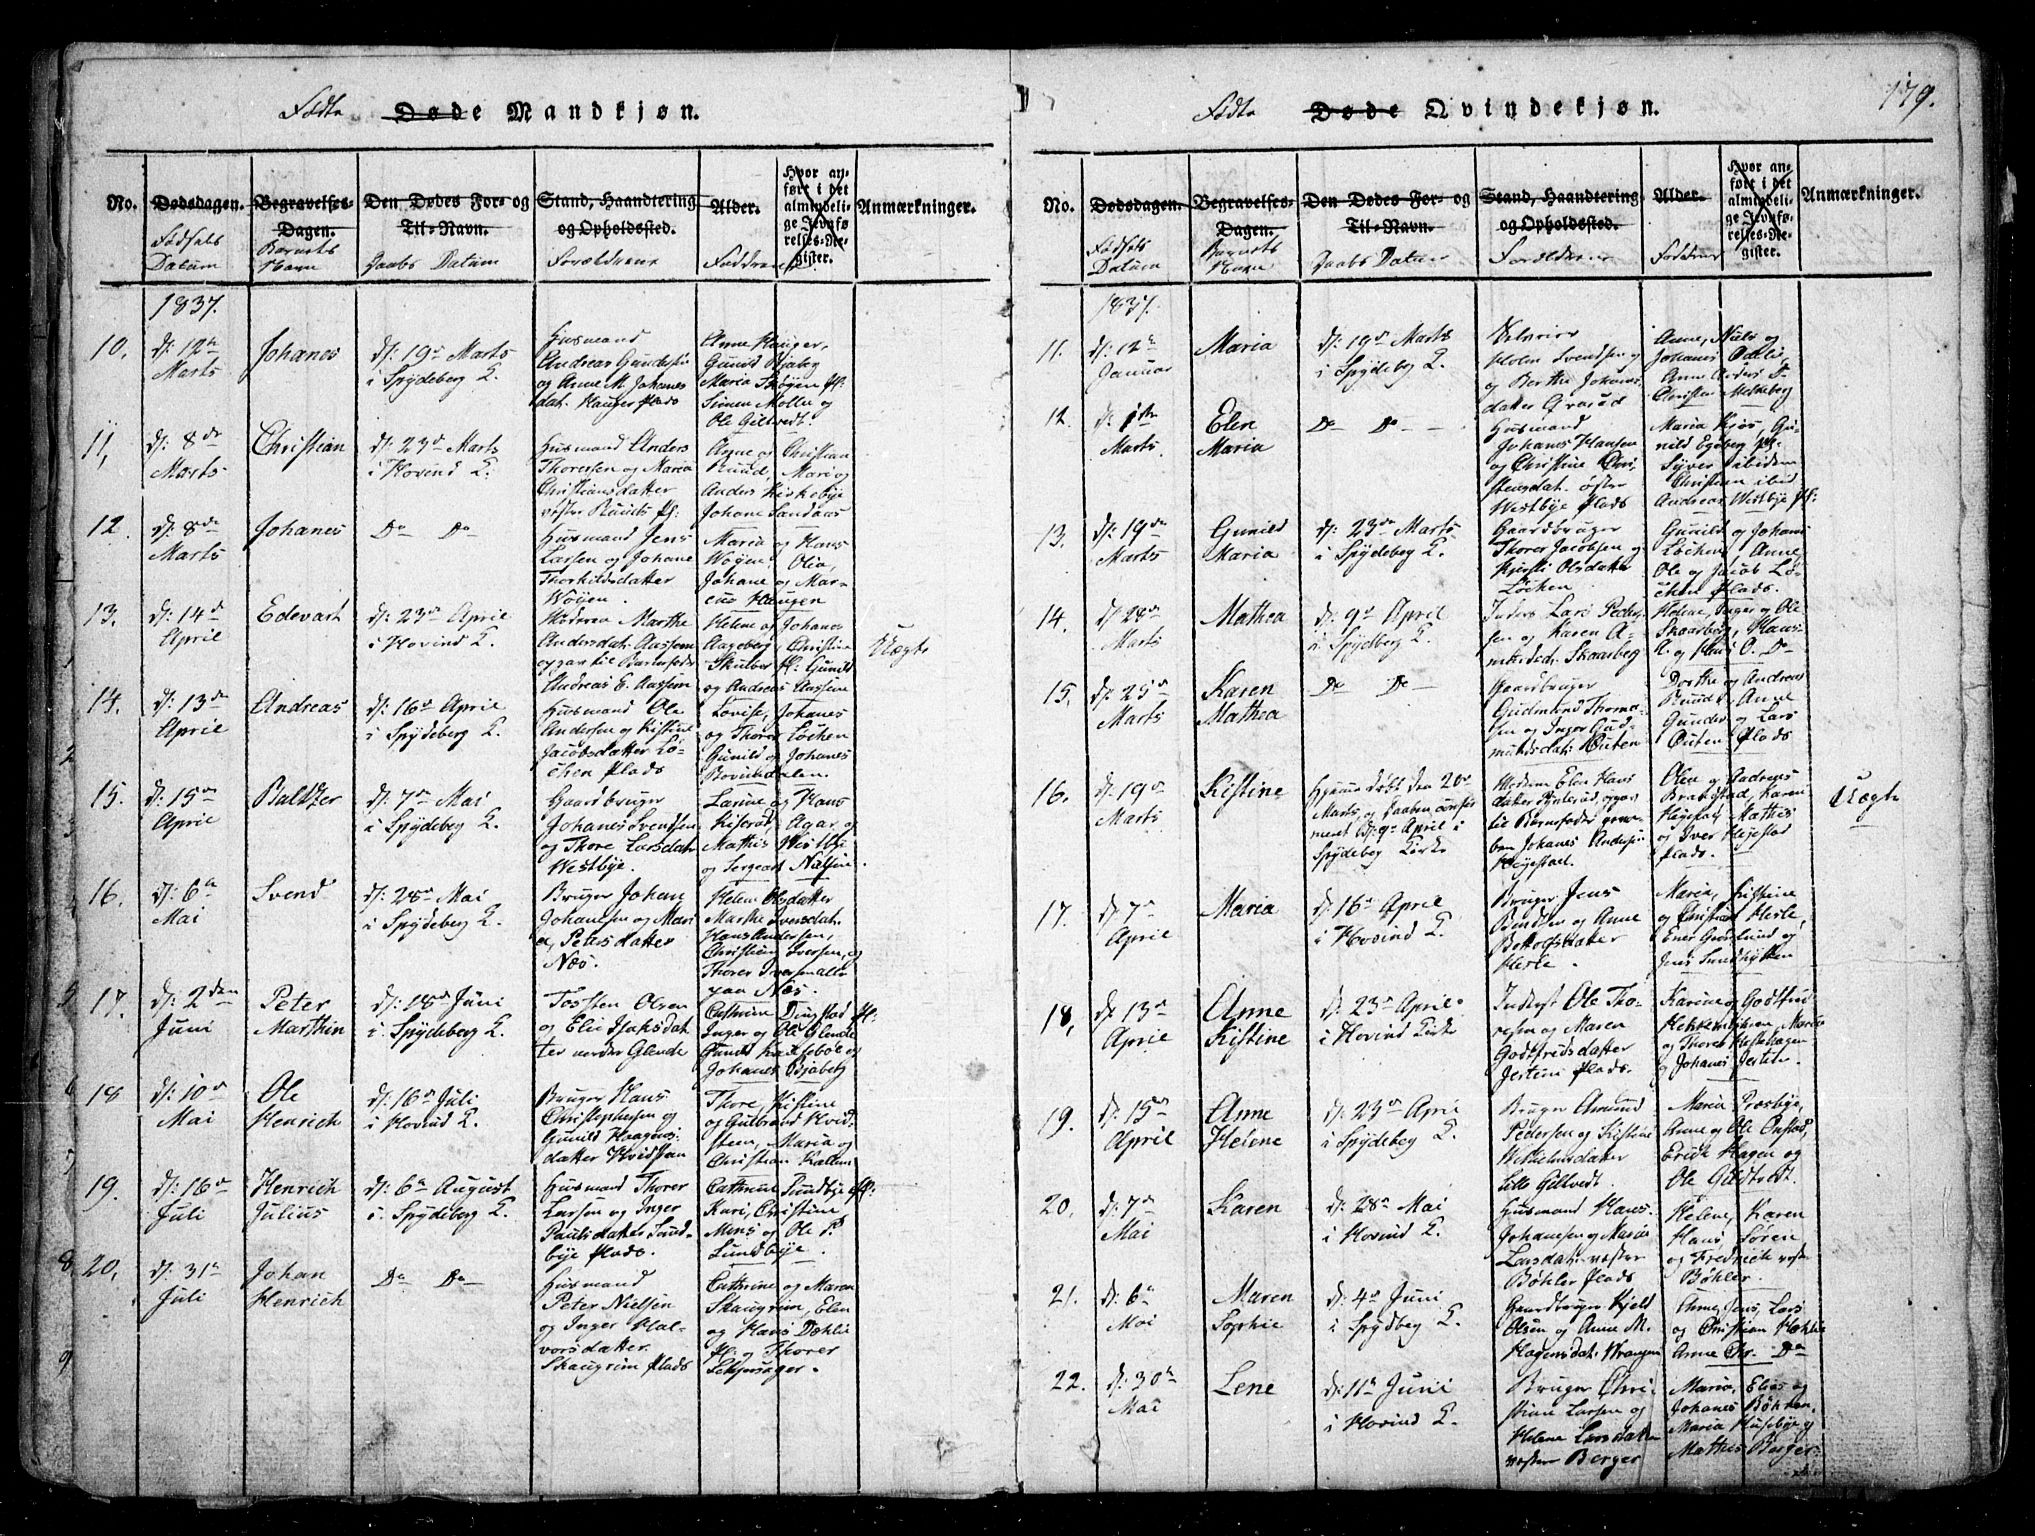 179.
Fødte Døde Mandkjøn.
No.
Dødsdagen.
Fødsels
Datum
Begravelses-
Dagen.
Barnets
Navn
Den Dødes For- og
Til-Navn.
Daabs Datum
Stand, Haandtering
og Opholdssted.
Forældrene
Alder.
Faddrene
Hvor an-
ført i det
almindeli-
ge Jevnfø-
relses-Re-
gister.
Anmærkninger.
1837.
10.
d: 12te
Marts
Johanes
d: 19de Marts
i Spydeberg K.
Husmand
Andreas Gundersen
og Anne M. Johanes
dat. Hauger Plads
Anne Hauger,
Gunild Bjaberg
Maria Skøjen Pl:
Simen Molle og
Ole Giltvedt.
11,
d: 8de
Marts
Christian
d: 23de Marts
i Hovind K.
Husmand Anders
Thoresen og Maria
Christiansdatter
vestre Ruuds Pl:
Anne og Christian
Ruud, Mari og
Anders Kirkebye
Johane Sandaas
12.
d: 8de
Marts
Johanes
Do Do
Husmand Jens
Larsen og Johane
Thorkildsdatter
Wøyen.
Maria og Hans
Wøyen, Olia,
Johane og Mar-
cus Haugen
13.
d: 14de
April
Edevart
d: 23de April
i Hovind K.
Moderen Marthe
Andersdat. Aassem
opgav til Barnefader
Andreas E. Aassem
Helene og Johanes
Aageberg, Christine
Skulber Pl: Gunild
og Andreas Aassem
Uægte
14.
d: 13de
April
Andreas
d: 16de April
i Spydeberg K.
Husmand Ole
Andersen og Kistine
Jacobsdatter Lø-
chen Plads
Lovise, Johanes
og Thorer Løchen
Gunild og Johanes
15.
d: 15de
April
Baltzer
d: 7de Mai
i Spydeberg K.
Gaardbruger
Johanes Svendsen
og Thore Larsdat.
Westbye.
Larine og Hans
Agar, og
Mathis Westbye
og Sergeant Nielsen
16.
d: 6te
Mai
Svend
d: 28de Mai
i Spydeberg K.
Bruger Johan
Johansen og Mari
a, Petersdatter
Næs.
Helene Olsdatter
Marthe Iversdat.
Hans Andersen,
Christian Iversen, og
Thorer Iversen alle
paa Næs.
17.
d: 2den
Juni
Peter
Marthin
d: 18de Juni
i Spydeberg K.
Tosten Olsen
og Elie Isaksdat
ter nordre Glende
Cathrine Dingstad Pl:
Inger og Ole Glende
Johanes Bjaberg
18
d: 10de
Mai
Ole
Henrich
d: 16de Juli
i Hovind K.
Bruger Hans
Christophersen og
Gunild Haagens-
datter Hvidsten
Thore, Kistine
og Gulbrand Hvid
steen, Maria og
Christian Kallem
19.
d: 16de
Juli
Henrich
Julius
d: 6te August
i Spydeberg K.
Husmand Thorer
Larsen og Inger
Paulsdatter Sund-
bye Plads.
Cathrine Sundbye Pl:
Kari, Christine
Mons og Ole P.
Sundbye.
20,
d: 31te
Juli
Johan
Henrich
Do Do
Husmand
Peter Nielsen
og Inger Hal-
vorsdatter
Skaugrim Plads
Cathrine og Maren
Skaugrim, Elen
og Hans Dæhlie
Pl. og Thorer
Fødte Døde Qvindekjøn.
No.
Dødsdagen.
Fødsels
Datum
Begravelses-
Dagen.
Barnets
Navn
Den Dødes For- og
Til-Navn.
Daabs Datum
Stand, Haandtering
og Opholdssted.
Forældrene
Alder.
Faddrene
Hvor an-
ført i det
almindeli-
ge Jevnfø-
relses-Re-
gister.
Anmærkninger.
1837.
11.
d: 12te
Januar
Maria
d: 19de Marts
i Spydeberg K.
Holm Svendsen og
og Berthe Johanes-
datter Grøsud
Anne, Niels og
Johanes
Anne
Christen Melleberg
12.
d: 1ste
Marts
Elen
Maria
Do Do
Husmand
Johanes Hansen
og Christine Chri-
stensdat. østre
Westbye Plads
Maria Kjos, Gu-
nild Egeberg Pl:
Syver ibidem
Christian ibid
Andreas Westbye Pl:
13.
d: 19de
Marts
Gunild
Maria
d: 23de Marts
i Spydeberg K.
Gaardbruger
Thorer Jacobsen og
Kjersti Olsdatter
Løchen
Gunild og Johanes
Løchen, Anne,
Ole og Jacob Lø-
chen Plads.
14.
d: 28de
Marts
Mathea
d: 9de April
i Spydeberg K.
Inders. Lars Peder-
sen og Karen A-
Skaarberg
Helene, Inger og Ole
Skaarberg, Hans
A. og Hans O. Do
15.
d: 25de
Marts
Karen
Mathea
Do Do
Gaardbruger
Gudmund Thorma-
sen og Inger Gud-
mundsdat. Outen
Dorthe og Andreas
Ruud, Anne
Gunder og Lars
Outen Plads
16.
d: 19de
Marts
Kistine
Hjemme døbt den 20de
Marts, og Daaben confir
meret d: 9de April i
Spydeberg Kirke
Moderen Elen Hans
datter
til Barnefader
Johanes Andersen
Høyestad.
Olea og Andreas
Brabestad, Karen
Høyestad, Mathis
og Iver Høyestad
Plads.
Uægte
17.
d: 7de
April
Maria
d: 16de April
i Hovind K.
Bruger Jens
og Anne
Herle.
Maria, Kistine
og Christian Herle,
Jens Smedhytten
18,
d: 13de
April
Anne
Kistine
d: 23de April
i Hovind Kirke
Inderst Ole Tho-
resen og Maren
Godtfredsdatter
Jertum Plads.
Karine og Godtfred
Maria
og Thorer
og Johanes
19.
d: 15de
April
Anne
Helene
d: 23de April
i Spydeberg K.
Bruger Amund
Pedersen og Kistine
Wilhelmsdatter
Lille Giltvedt.
Maria Præsbye,
Anne og Ole Onstad,
Erich Hagen og
Ole Gildtvedt.
20.
d: 7de
Mai
Karen
d: 28de Mai
i Hovind K.
Husmand Hans
Johansen og Maria
Larsdat. vestre
Bøhler Plads
Helene, Karen
Hans Søren
og Fredrich vestre
Bøhler.
21.
d: 6te
Mai
Maren
Sophie
d: 4de Juni
i Spydberg K.
Gaardbruger Kjeld
Olsen og Anne M.
Hagensdat. Wrangen
Anne, Jens, Lars
og Christian Hæhlie
Anne Chr. Do
22.
d: 30te
Mai
Lene
d: 11te Juni
i Hovind K.
Bruger Chri-
stian Larsen og
Helene Larsdatter
vestre Berger
Maria, Elias og
Johanes Bøhren.
Maria Husebye og
Mathis Berger